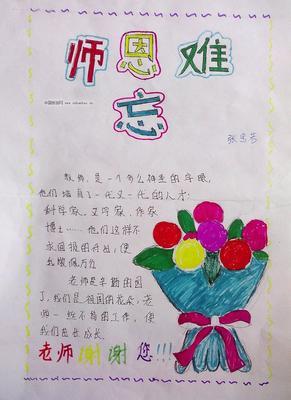 师恩难
忘
张
教师,是一个多么神圣的字眼,
他们培育了一代又一代的人才:
科学家、文学家、作家
博士……他们这样不
求回报的付出,使
我敬佩万分
老师是辛勤的园
丁,我们是祖国的花朵,老
师一丝不苟的工作,使
我们茁壮成长。
老师谢谢您!!!